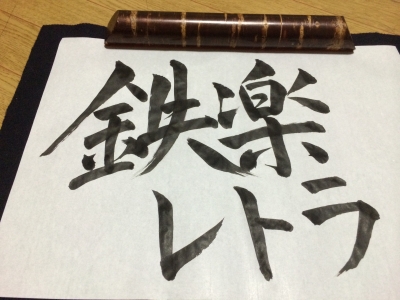 鉄楽
レトラ